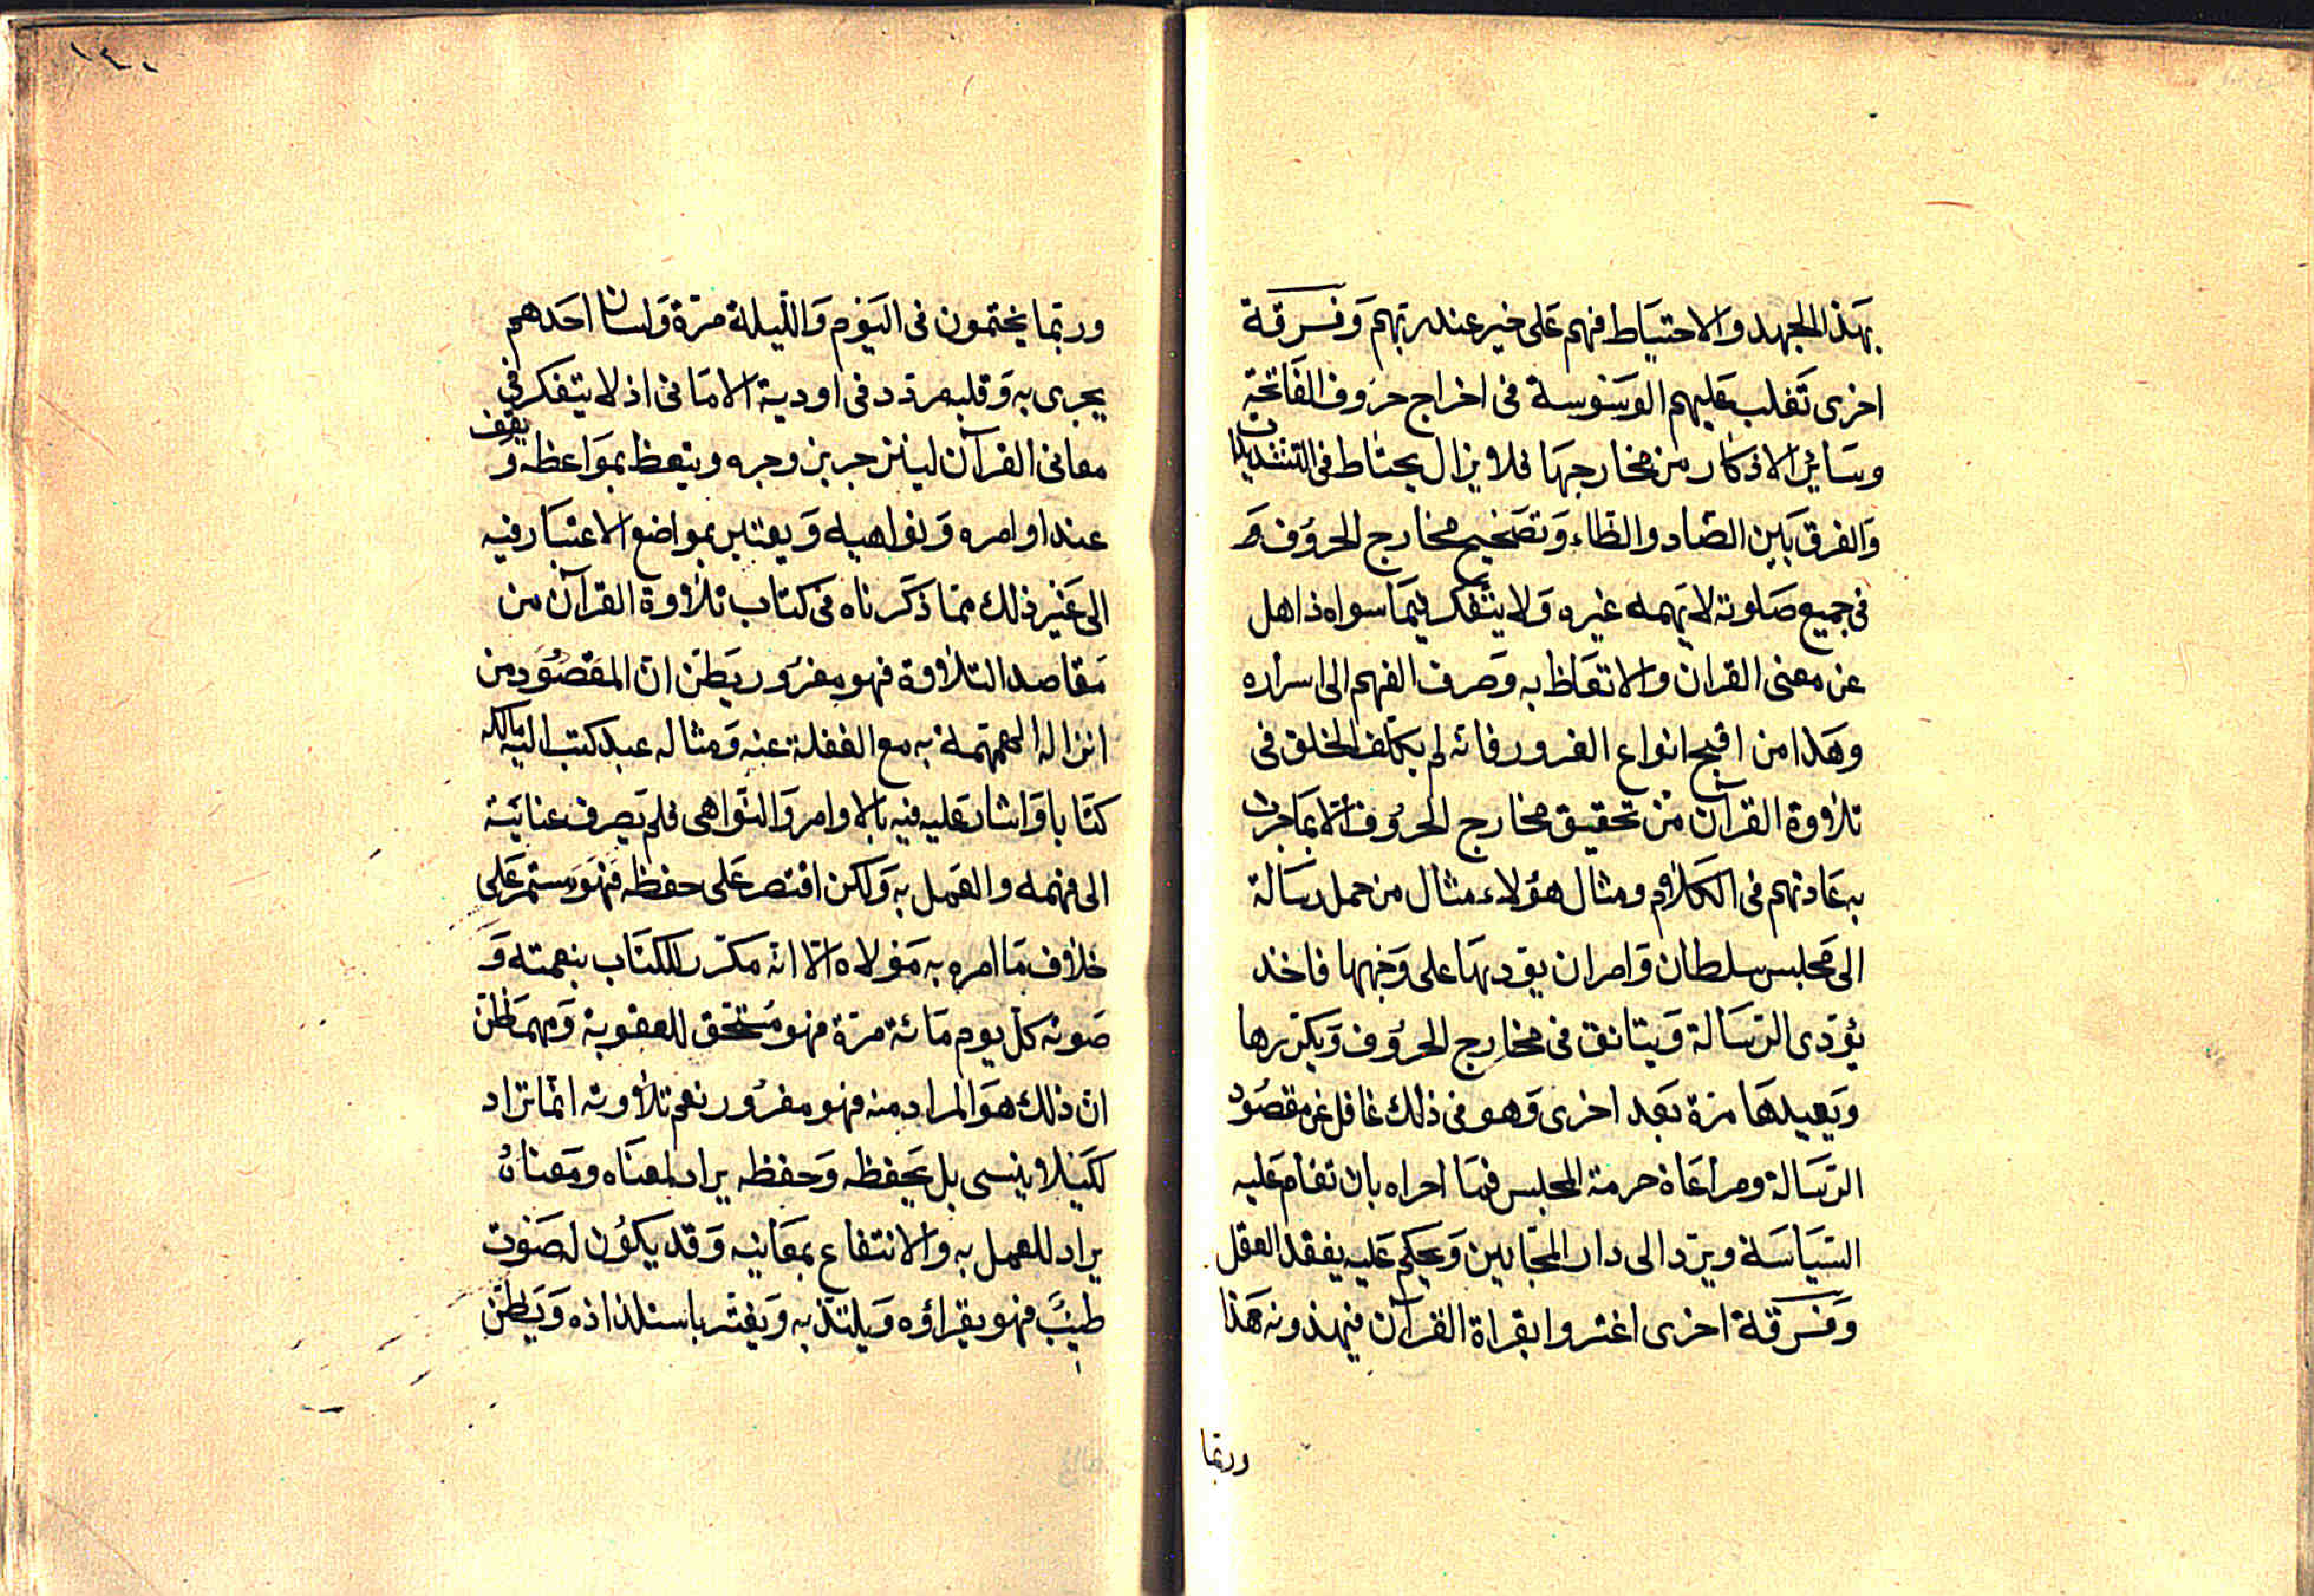 بهذا الجهد والاحتياط فهم على خير عند ربهم وفرقة
اخرى تغلب عليهم الوسوسة فى اخراج حروف الفاتحة
وسائر الاذكار من مخارجها فلا يزال يحتاط فى التشديدات
والفرق بين الضاد والظاء وتصحيح مخارج الحروف و
فى جميع صلوته لا يهمه غيره ولا يتفكر فيما سواه ذاهل
عن معنى القران والاتعاظ به وصرف الفهم الى اسراره
وهذا من اقبح انواع الغرور فانه لم يكلف الخلق فى
تلاوة القرآن من تحقيق مخارج الحروف الا بما جرت
به عادتهم فى الكلام ومثال هؤلاء مثال من حمل رسالة
الى مجلس سلطان وامر ان يؤديها على وجهها فاخذ
يؤدى الرسالة ويتانق فى مخارج الحروف ويكررها
ويعيدها مرة بعد اخرى وهو فى ذلك غافل عن مقصود
الرسالة ومراعاة حرمة المجلس فما احراه بان تقام عليه
السياسة ويرد الى دار المجانين ويحكم عليه بفقد العقل
وفرقة اخرى اغتروا بقراة القرآن فيهذونه هذا
وربما
١٤٠
وربما يختمون فى اليوم والليلة مرة ولسان احدهم
يجرى به وقلبه مردد فى اودية الامانى اذ لا يتفكر فى
معانى القرآن لينزجر بزوجره ويتعظ بمواعظه و يقف
عند اوامره ونواهيه ويعتبر بمواضع الاعتبار فيه
الى غير ذلك مما ذكرناه فى كتاب تلاوة القرآن من
مقاصد التلاوة فهو مغرور يظن ان المقصود من
انزاله الهمهمة به مع الغفلة عنه ومثاله عبد كتب اليه مالكه
كتابا واشار عليه فيه بالاوامر والنواهى فلم يصرف عنايته
الى فهمه والعمل به ولكن اقتصر على حفظه فهو مستمر على
خلاف ما امره به مولاه الا انه مكرر للكتاب بنعمته و
صوته كل يوم مائة مرة فهو مستحق للعقوبة ومهما ظن
ان ذلك هو المراد منه فهو مغرور نعم تلاوته انما تراد
لكيلا ينسى بل يحفظه وحفظه يراد لمعناه ومعناه
يراد للعمل به والانتفاع بمعانيه وقد يكون له صوت
طيب فهو يقراؤه ويلتذ به ويغتر باستلذاذه ويظن